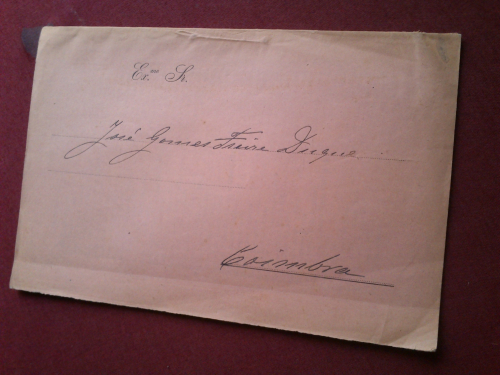 Ex.mo Sr.
José Gomes Freire Duque
Coimbra